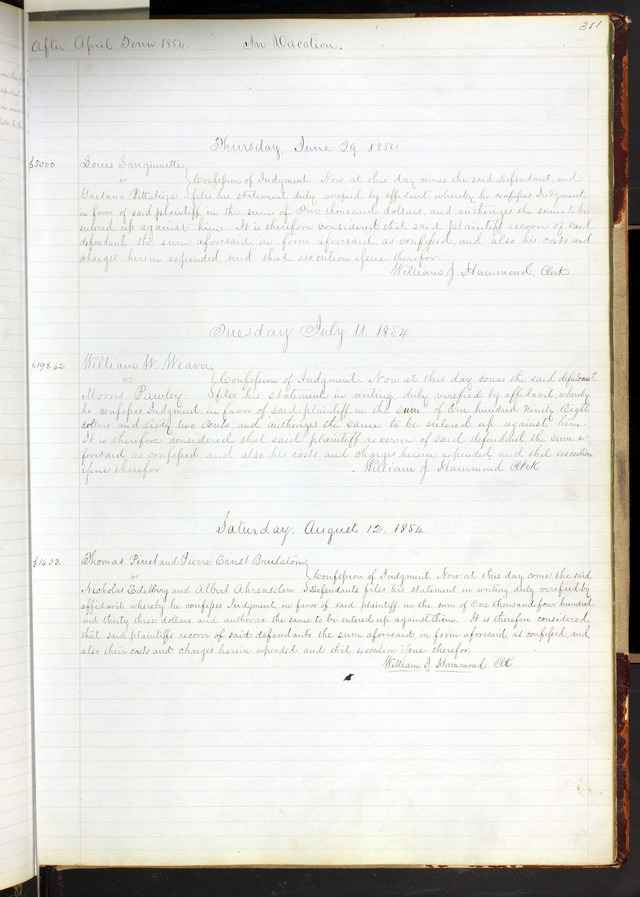 311
After April Term 1854. In Vacation.
Thursday, June 29, 1854
Louis Sanguinette
vs } Confession of Judgment. Now at this day comes the said Defendant, and
Gaetano Pittaluga files his statement duly verified by affidavit, whereby he confesses Judgment
in favor of said plaintiff, in the sum of Two thousand dollars, and authorizes the same to be
entered up against him. It is therefore considered that said plaintiff recover of said
defendant the sum aforesaid in form aforesaid, as confessed, and also his costs and
charges herein expended and that execution issue therefor.
William J. Hammond, Clerk
Tuesday July 11. 1854
$198.62 William W. Weaver
vs } Confession of Judgment. Now at this day comes the said defendant
Morris Pawley files his statement in writing, duly verified by affidavit, whereby
he confesses Judgment in favor of said plaintiff in the sum of One hundred Ninety Eight
dollars and sixty two cents, and authorizes the same to be entered up against him.
It is therefore considered that said plaintiff recover of said defendant the sum a-
foresaid, as confessed and also his costs and charges herein expended and that execution
issue therefor. William J. Hammond Clerk
Saturday, August 12, 1854.
Thomas Pinet and Pierre Ernst Brulatour
vs } Confession of Judgment. Now at this day come the said
Nicholas Edelborg and Albert Ahrensolm Defendants files his statement in writing duly verified by
affidavit, whereby he confesses Judgment, in favor of said plaintiff in the sum of One thousand four hundred
and thirty three dollars and authorize the same to be entered up against them. It is therefore considered
that said plaintiffs recover of said defendants the sum aforesaid in form aforesaid, as confessed, and
also their costs and charges herein expended and that execution issue therefor.
William J. Hammond Clk